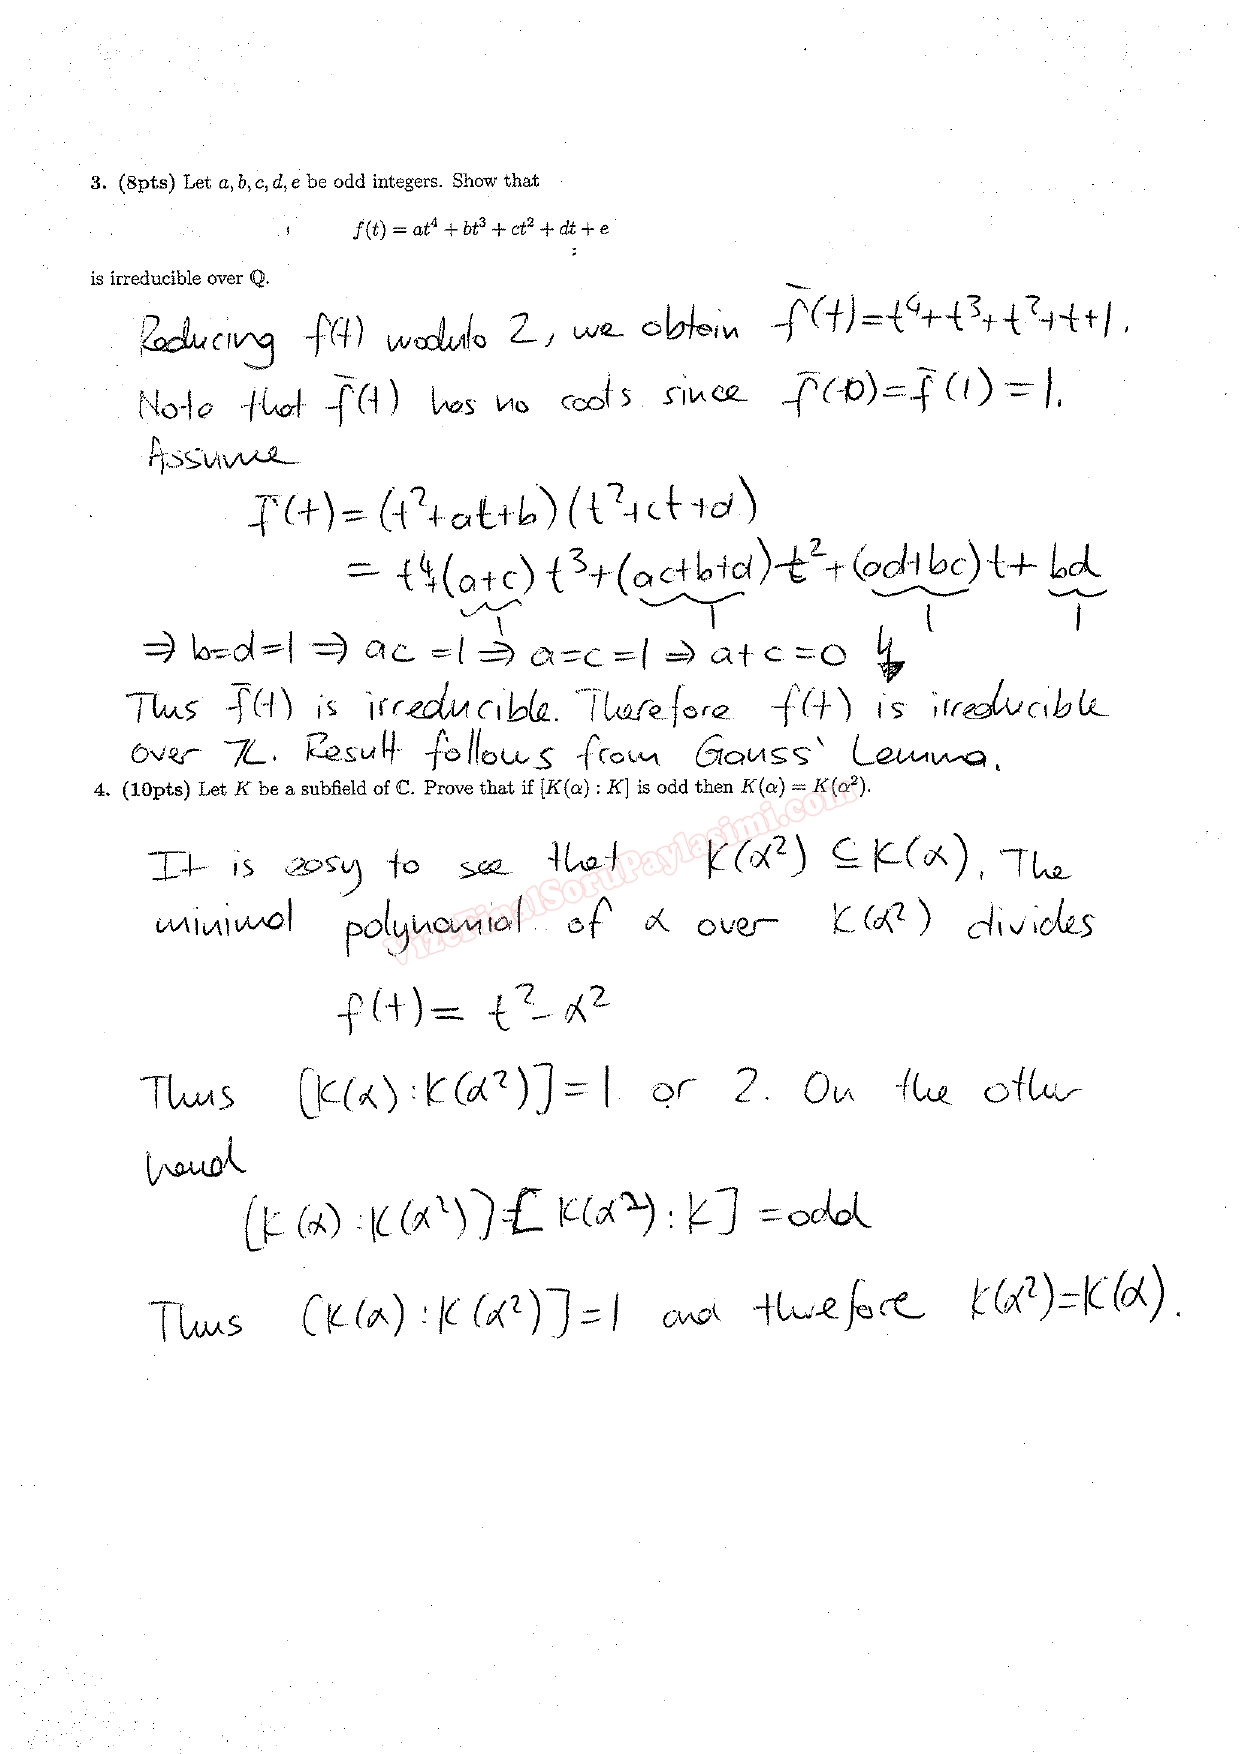 3. (8pts) Let a, b, c, d, e be odd integers. Show that
f(t) = at⁴ + bt³ + ct² + dt + e
is irreducible over ℚ.
Reducing f(t) modulo 2, we obtain f̄(t)=t⁴+t³+t²+t+1.
Note that f̄(t) has no roots since f̄(0)=f̄(1)=1.
Assume
f̄(t)=(t²+at+b)(t²+ct+d)
= t⁴+(a+c)t³+(ac+b+d)t²+(ad+bc)t+bd
1 1 1 1
⇒ b=d=1 ⇒ ac=1 ⇒ a=c=1 ⇒ a+c=0 ↯
Thus f̄(t) is irreducible. Therefore f(t) is irreducible
over ℤ. Result follows from Gauss' Lemma.
4. (10pts) Let K be a subfield of ℂ. Prove that if [K(α) : K] is odd then K(α) = K(α²).
It is easy to see that K(α²) ⊆ K(α). The
minimal polynomial of α over K(α²) divides
f(t) = t² - α²
Thus [K(α):K(α²)]=1 or 2. On the other
hand
[K(α):K(α²)][K(α²):K] = odd
Thus [K(α):K(α²)]=1 and therefore K(α²)=K(α).
VizeFinalSoruPaylasimi.com